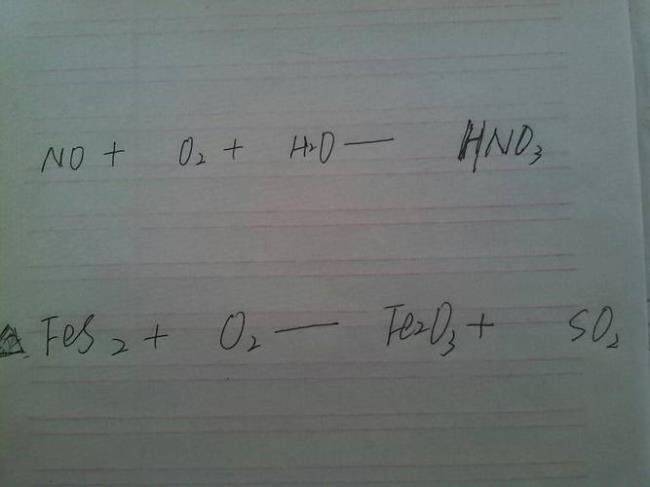 NO + O₂ + H₂O — HNO₃
FeS₂ + O₂ — Fe₂O₃ + SO₂